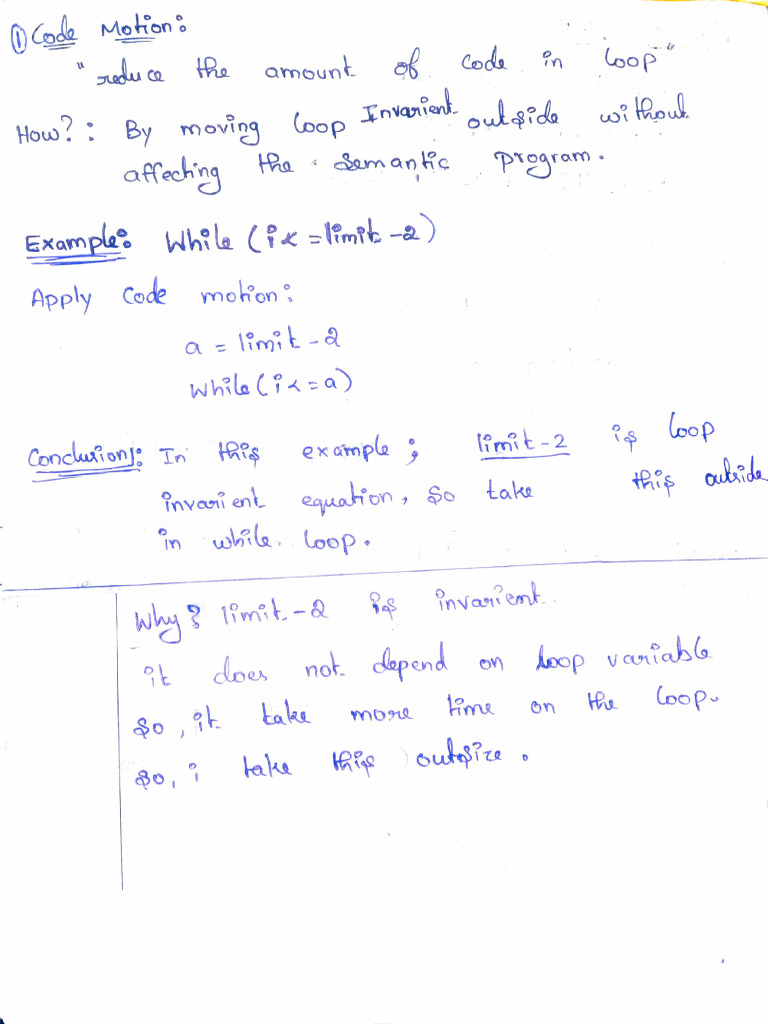 ① Code Motion:
"reduce the amount of code in loop"
How?: By moving loop Invarient outside without
affecting the semantic program.
Example: While (i<=limit-2)
Apply Code motion:
a = limit-2
While(i<=a)
Conclusion: In this example; limit-2 is loop
invarient equation, so take this outside
in while loop.
Why? limit-2 is invarient.
it does not depend on loop variable
so, it take more time on the loop.
so, i take this outsize.